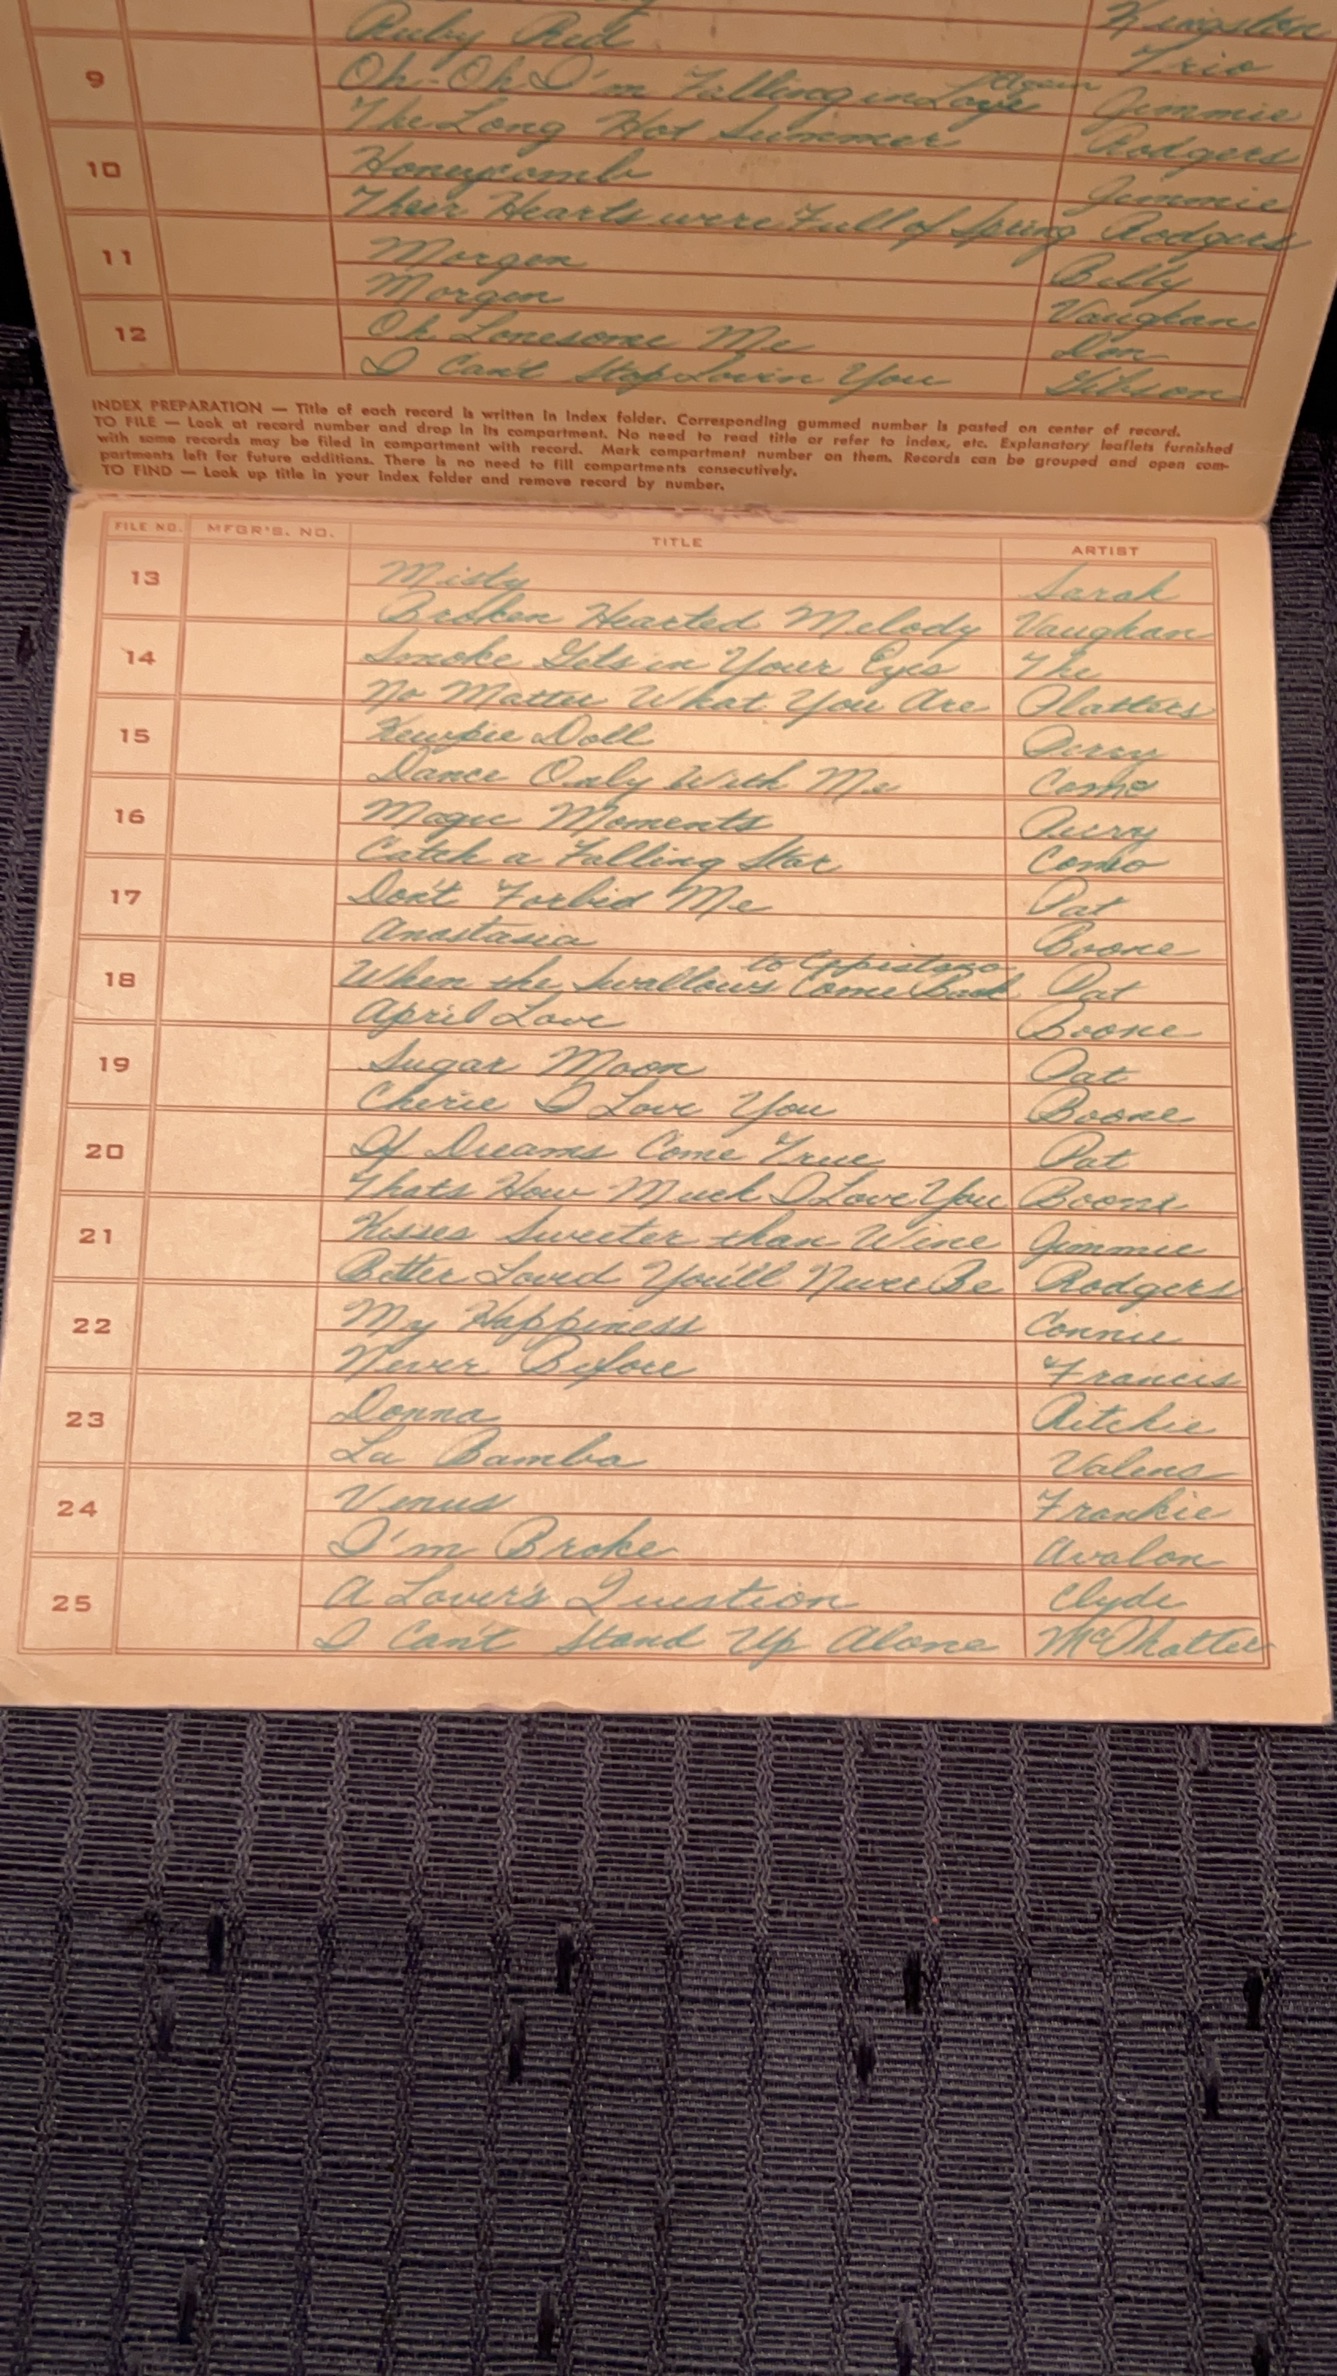 Ruby Red Kingston
Trio
9 Oh-Oh I'm Falling in Love Again Jimmie
The Long Hot Summer Rodgers
10 Honeycomb Jimmie
Their Hearts were Full of Spring Rodgers
11 Morgen Billy
Morgen Vaughan
12 Oh Lonesome Me Don
I Can't Stop Lovin You Gibson
INDEX PREPARATION — Title of each record is written in Index folder. Corresponding gummed number is pasted on center of record.
TO FILE — Look at record number and drop in its compartment. No need to read title or refer to index, etc. Explanatory leaflets furnished
with some records may be filed in compartment with record. Mark compartment number on them. Records can be grouped and open com-
partments left for future additions. There is no need to fill compartments consecutively.
TO FIND — Look up title in your index folder and remove record by number.
FILE NO. MFGR'S. NO. TITLE ARTIST
13 Misty Sarah
Broken Hearted Melody Vaughan
14 Smoke Gets in Your Eyes The
No Matter What You Are Platters
15 Kewpie Doll Perry
Dance Only With Me Como
16 Magic Moments Perry
Catch a Falling Star Como
17 Don't Forbid Me Pat
Anastasia Boone
to Cappistano
18 When the Swallows Come Back Pat
April Love Boone
19 Sugar Moon Pat
Cherie I Love You Boone
20 If Dreams Come True Pat
Thats How Much I Love You Boone
21 Kisses Sweeter than Wine Jimmie
Better Loved You'll Never Be Rodgers
22 My Happiness Connie
Never Before Francis
23 Donna Ritchie
La Bamba Valens
24 Venus Frankie
I'm Broke Avalon
25 A Lover's Question Clyde
I Can't Stand Up Alone McPhatter